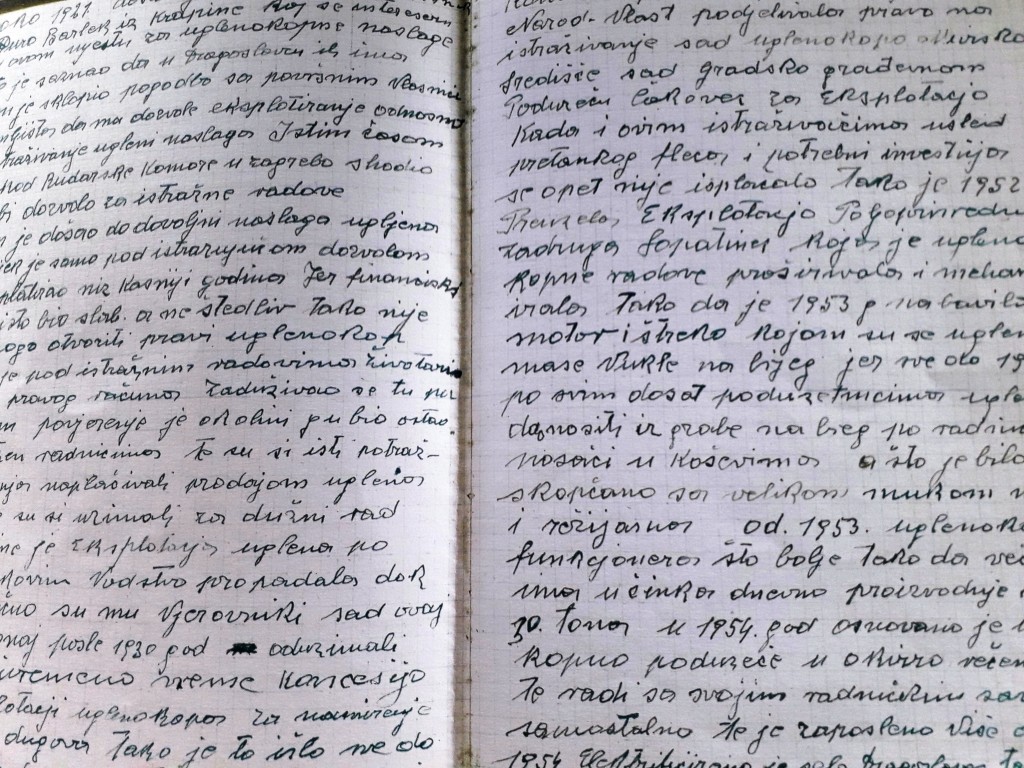 oko 1921
Đuro Barlek iz Krapine koj se interesira
ovom mjestu za uglenokopne naslage
je saznao da u Dragoslavcu ih ima
je sklopio pogodbo sa površnim vlasnici
da mu dozvole eksplotiranje odnosno
traživanje ugleni naslaga Istim časom
kod Rudarske Komore u zagrebo shodio
bi dozvolo za istražne radove
je došao do dovoljni naslaga ugljena
je samo pod istražnom dozvolom
niz kasniji godina Jer financiski
isto bio slab. a ne štedliv Tako nije
ogo otvoriti pravi uglenokop
je pod istražnim radovima životario
pravog računa zaduživao se tu pa
povjerenje je okolini gubio ostao
radnicima te su si isti potraž-
naplačivali prodajom uglena
su si uzimali za dužni rad
je Eksplotacija uglena po
Vodstvo propadala dok
su mu Vjerovniki sad ovaj
onaj posle 1930 god oduzimali
vreme koncesijo
uglenokopa za namirenje
dugova Tako je to išlo sve do
Narod- Vlast podjelivala pravo na
istraživanje sad uglenokopo okvirsko
središće sad Gradsko građevnom
Poduzeću Čakovec za Eksplotacijo
Kada i ovim istraživačima usled
pretankog fleca i potrebni investicija
se opet nije isplačalo Tako je 1952
Preuzela Eksplotacijo Poljoprivredna
zadruga Lopatinec koja je ugleno
kopne radove proširivala i mehani
irala Tako da je 1953 g nabavila
motor i štreko kojom su se uglene
mase Vukle na brijeg jer sve do 19
po svim dosat poduzetnicima uglen
donositi iz grabe na breg po radnici
nosači u koševima a što je bilo
skopčano sa velikom mukom
i režijama od. 1953. uglenokop
funkcjonera što bolje Tako da več
ima učinka dnevno proizvodnje
30. Tona u 1954. god osnovano je
kopno poduzeće u okviro
te radi sa svojim radničkim
samostalno te je zaposleno više
1954 Elektrificirano je selo Dragoslavec